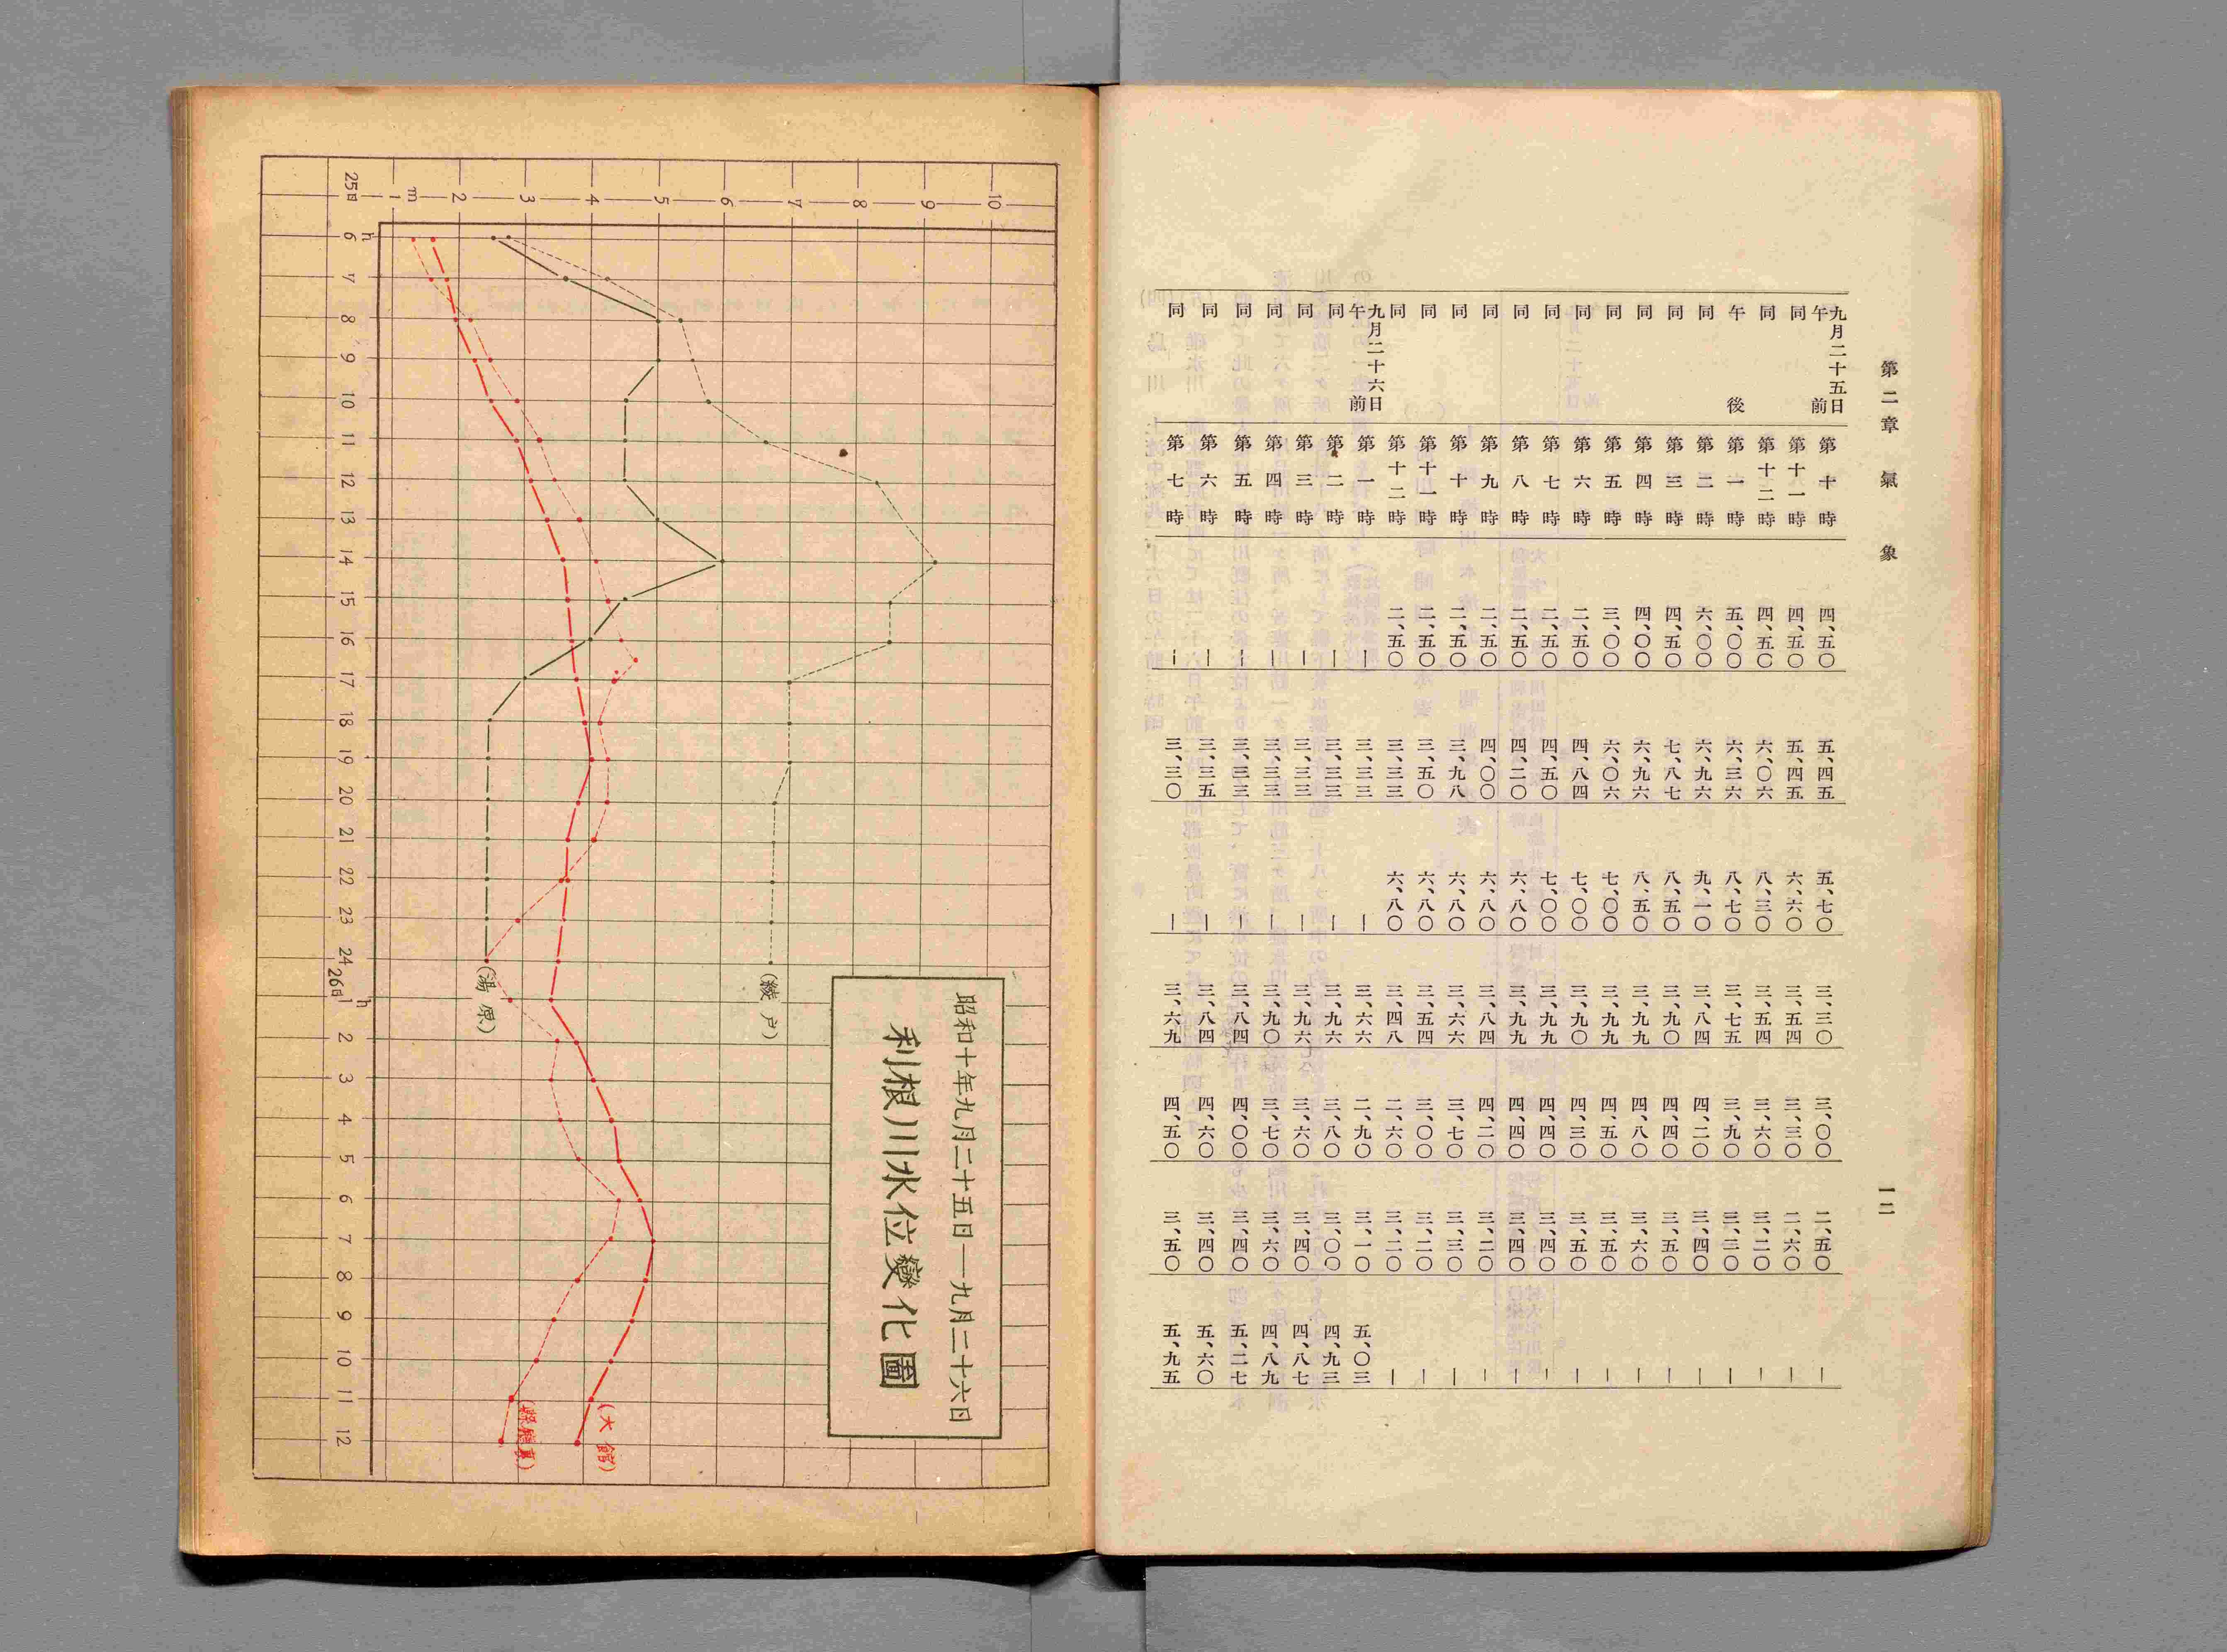 第二章 氣象
一二
九月二十五日午前 第十時 四、五〇 五、四五 五、七〇 三、三〇 三、〇〇 二、五〇 ―
同 第十一時 四、五〇 五、四五 六、六〇 三、五四 三、三〇 二、六〇 ―
同 第十二時 四、五〇 六、〇六 八、三〇 三、五四 三、六〇 三、二〇 ―
午後 第一時 五、〇〇 六、三六 八、七〇 三、七五 三、九〇 三、二〇 ―
同 第二時 六、〇〇 六、九六 九、一〇 三、八四 四、二〇 三、四〇 ―
同 第三時 四、五〇 七、八七 八、五〇 三、九〇 四、四〇 三、五〇 ―
同 第四時 四、〇〇 六、九六 八、五〇 三、九九 四、八〇 三、六〇 ―
同 第五時 三、〇〇 六、〇六 七、〇〇 三、九九 四、五〇 三、五〇 ―
同 第六時 二、五〇 四、八四 七、〇〇 三、九〇 四、三〇 三、五〇 ―
同 第七時 二、五〇 四、五〇 七、〇〇 三、九九 四、四〇 三、四〇 ―
同 第八時 二、五〇 四、二〇 六、八〇 三、九九 四、四〇 三、四〇 ―
同 第九時 二、五〇 四、〇〇 六、八〇 三、八四 四、二〇 三、二〇 ―
同 第十時 二、五〇 三、九八 六、八〇 三、六六 三、七〇 三、三〇 ―
同 第十一時 二、五〇 三、五〇 六、八〇 三、五四 三、〇〇 三、二〇 ―
同 第十二時 二、五〇 三、三三 六、八〇 三、四八 二、六〇 三、二〇 ―
九月二十六日午前 第一時 ― 三、三三 ― 三、六六 二、九〇 三、一〇 五、〇三
同 第二時 ― 三、三三 ― 三、九六 三、八〇 三、〇〇 四、九三
同 第三時 ― 三、三三 ― 三、九六 三、六〇 三、四〇 四、八七
同 第四時 ― 三、三三 ― 三、九〇 三、七〇 三、六〇 四、八九
同 第五時 ― 三、三三 ― 三、八四 四、〇〇 三、四〇 五、二七
同 第六時 ― 三、三五 ― 三、八四 四、六〇 三、四〇 五、六〇
同 第七時 ― 三、三〇 ― 三、六九 四、五〇 三、五〇 五、九五
昭和十年九月二十五日―九月二十六日
利根川水位變化圖
10
9
8
7
6
5
4
3
2
m
1
25日 6h 7 8 9 10 11 12 13 14 15 16 17 18 19 20 21 22 23 24 26日 1h 2 3 4 5 6 7 8 9 10 11 12
(綾戸)
(湯原)
(大館)